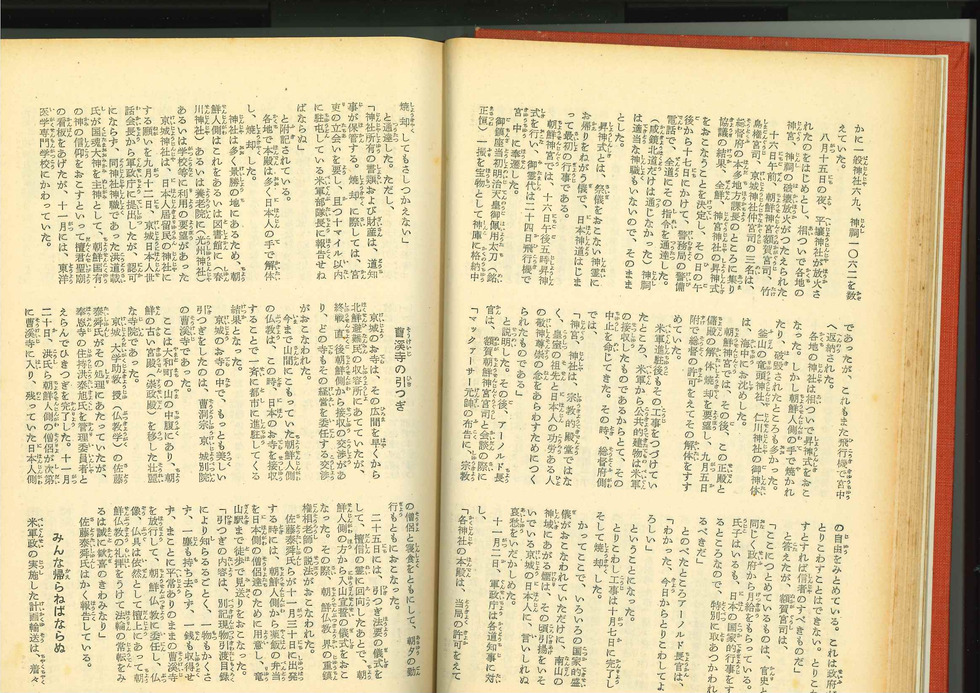 かに一般神社六九、神祠一〇六二を数
えていた。
八月十五日の夜、平壌神社が放火さ
れたのをはじめとし、相ついで各地の
神宮、神祠の破壊放火がつたえられた
十六日午前、朝鮮神宮額賀宮司、竹
島権宮司、京城神社仲宮司の三名は、
総督府の本多地方課長のところに集り
協議の結果、全鮮、神宮神社の昇神式
をおこなうことを決定し、その日の午
後から十七日にかけて、警務局の警備
電話で、全道にその指令を通達した。
(咸鏡北道だけは通じなかった)神祠
は適当な神職もいないので、そのまま
とした。
昇神式とは、祭儀をおこない神霊に
お帰りをねがう儀で、日本神道はじま
って最初の行事である。
朝鮮神宮では、十六日午後五時昇神
式を行い、御霊代は二十四日飛行機で
宮中に奉還した。
御鎮座当初明治天皇御佩用太刀(銘
正恒)一振を宝物として神庫に格納中
であったが、これもまた飛行機で宮中
へ返納された。
各地の神社は相ついで昇神式をおこ
なった。しかし朝鮮人側の手で焼かれ
たり、破毀されたところも多かった。
釜山の竜頭神社では、神社の御神体
は、海中にお沈めした。
朝鮮神宮では、その後、この正殿と
備殿の解体、焼却を要望し、九月五日
附で総督の許可をえてその解体をすす
めていた。
米軍進駐後もその工事をつづけてい
たところ、米軍から公共的建物は米軍
の接収したものであるからとて、その
中止を命じてきた。その時、総督府側
では、
「神宮、神社は、宗教的殿堂ではな
く、皇室の祖先と日本人の功労ある人
の敬神尊崇の念をあらわすためにつく
られたものである」
と説明した。その後、アーノルド長
官は、額賀朝鮮神宮宮司と会談の際に
「マックァーサー元帥の布告に、宗教
の自由をみとめている。これは政府
とりこわすことはできない。とりこわ
すとすれば信者のすべきものだ」
と答えたが、額賀宮司は、
「ここにつとめているものは、官吏と
同じく政府から月給をもらっている。
氏子はいるも、日本の国家的行事をす
るところなので、特別に取あつかわれ
るべきだ」
とのべたところアーノルド長官は、
「わかった、今日からとりこわしてよ
ろしい」
ということになった。
とりこわし工事は十月七日に完了し
そして焼却した。
かつて、ここで、いろいろの国家的盛
儀がおこなわれていただけに、南山の
神域にあがる煙は、その頃引揚をいそ
いでいる京城の日本人に、言いしれぬ
哀愁をいだかしめた。
十一月二日、軍政庁は各道知事に対
し、
「各神社の本殿は、当局の許可をえて
焼却してもさしつかえない」
と通達した。ただし、
「神社所有の書類および財産は、道知
事が保管する。焼却に際しては、官
吏の立会いを要し、且つ十マイル以内
に駐屯している米軍部隊長に報告せね
ばならぬ」
と附記されている。
各地で本殿は多く日本人の手で解体
し、焼却した。
神社は多く景勝の地にあるため、朝
鮮人側はこれをあるいは図書館に(春
川神社)あるいは養老院に(光州神社)
あるいは学校等に利用の要望があった
京城神社は、日本人居留民の神社に
する願いを九月十二日、京城日本人世
話会長から軍政庁に提出したが、認可
にならず、同神社神職であった洪耕杓
氏が国魂大神を主神として、朝鮮固有
の神の信仰をおこすといって檀君聖廟
の看板をあげたが、十一月には、東洋
医学専門学校にかわっていた。
曹溪寺の引つぎ
京城のお寺は、その広間を早くから
北鮮避難民の収容所にあてていたが、
終戦直後朝鮮側から接収の交渉があ
り、どの寺もその経営を委任する交渉
がおこなわれた。
今まで山間にこもっていた朝鮮人側
の仏教は、この時、日本のお寺を接収
することで一斉に都市に進駐してくる
結果となった。
京城のお寺の中で、もっとも美しい
引つぎをしたのは、曹洞宗京城別院
の曹溪寺であった。
ここは大和町の山の中腹にあり、朝
鮮の古い宮殿(崇政殿)を移した壮麗
な寺院であった。
京城大学助教授(仏教学)の佐藤
泰舜氏がその処理にあたっていたが、
奉恩寺の住持洪泰旭氏を管理委員者と
えらんでひきつぎを完了した。十一月
二十日、洪氏ら朝鮮人側の僧侶が次第
に曹溪寺に入り、残っていた日本人側
の僧侶と寝食をともにして、朝夕の勤
行もともにおこなった。
二十五日には、引つぎ法要の儀式を
して、檀信の霊に回向したあとで、朝
鮮人側の方から入山宣誓の儀式をおこ
なった。その際、朝鮮仏教界の重鎮
権相老師の説法がおこなわれた。
佐藤泰舜氏らが十一月三十日に出発
する時には、朝鮮人側から薬飯の弁当
を日本人側の僧侶達のために用意し、竜
山駅まで徒歩で見送りをおこなった。
「引つぎの内容は、別記現物引渡目録
により知らるるごとく、一物もかさ
ず、一塵も持ち去らず、一銭も収得せ
ず、まことに平常ありのままの曹溪寺
を放行して、朝鮮仏教に委任し、仏
像、仏具は依然として檀上にあって朝
鮮仏教の礼拝をうけて法輪の常転をみ
るは誠に歓喜のきわみなり」
佐藤泰舜氏はかく報告している。
みんな帰らねばならぬ
米軍政の実施した計画輸送は、着々